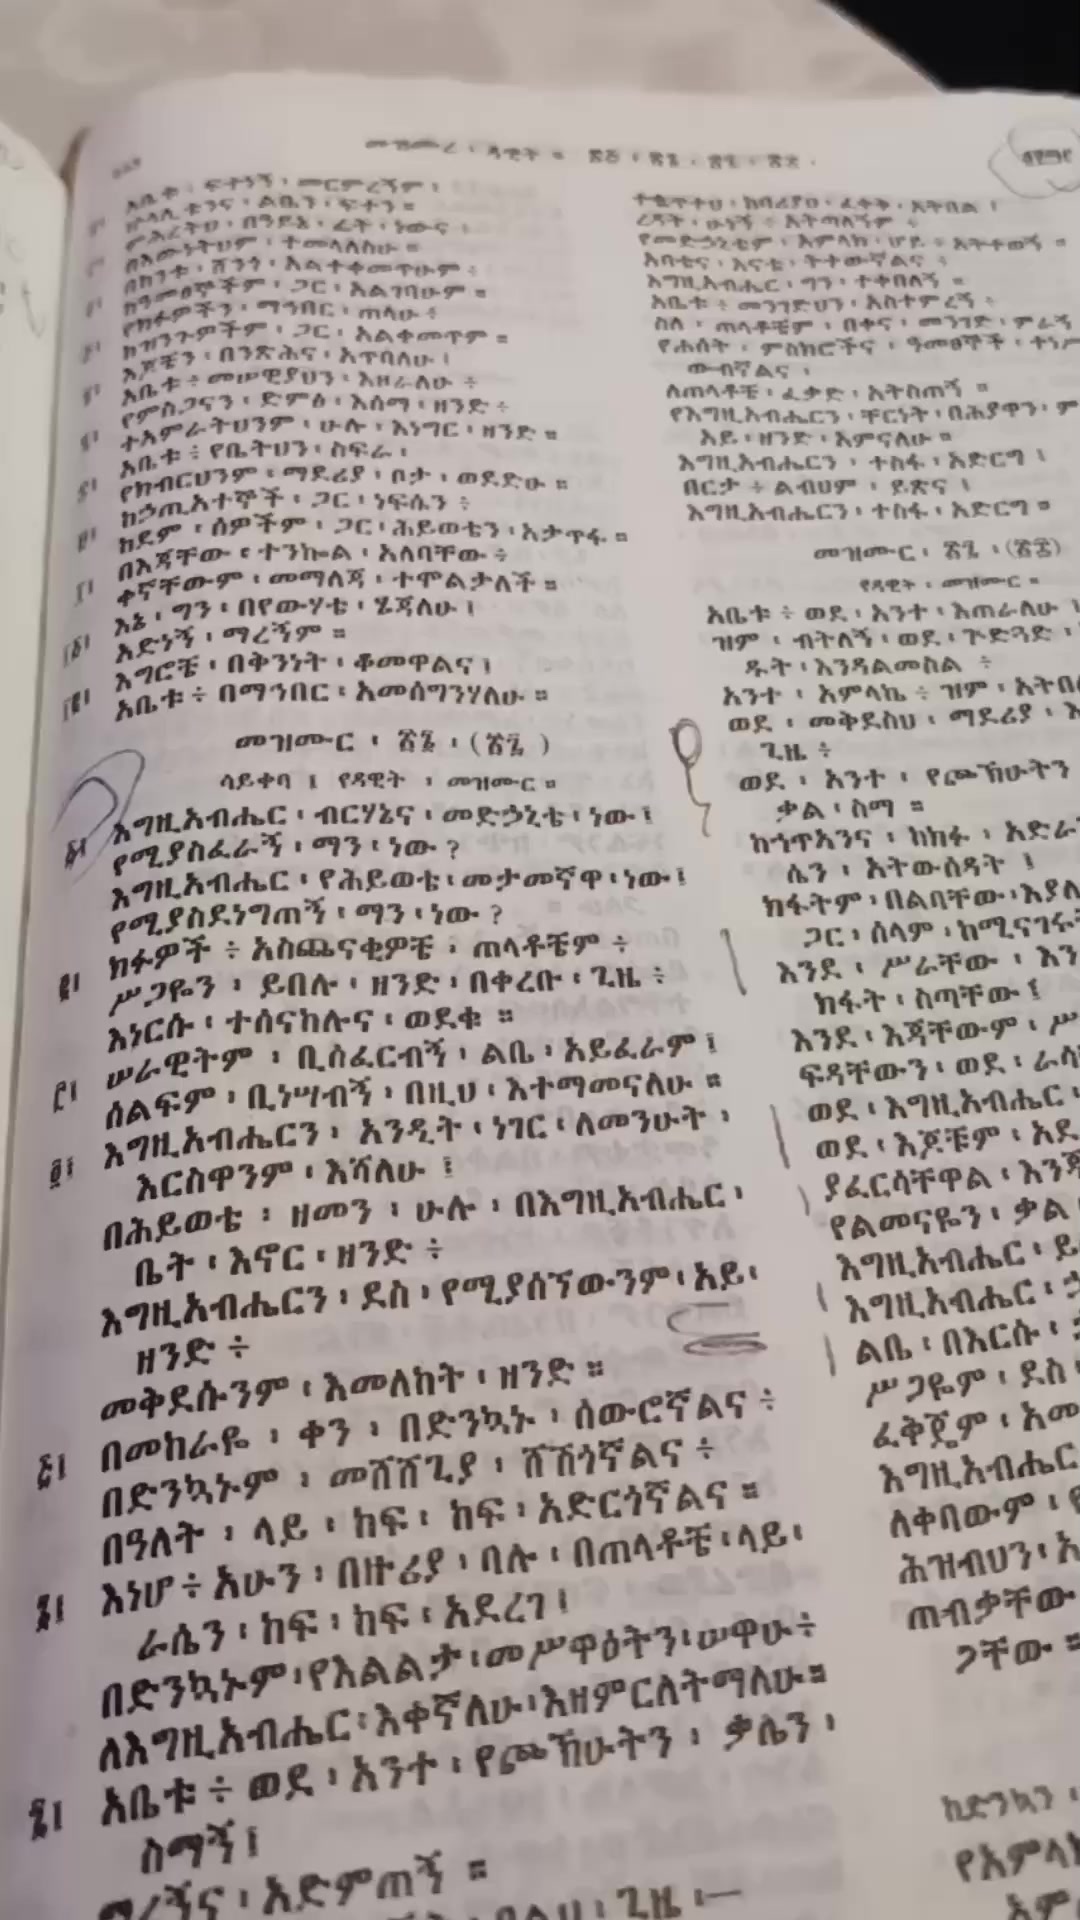 መዝሙረ ፡ ዳዊት ።
አቤቱ ፡ ፍተነኝ ፡ መርምረኝም ፤
ኵላሊቴንና ፡ ልቤን ፡ ፍተን ።
ምሕረትህ ፡ በዓይኔ ፡ ፊት ፡ ነውና ፤
በእውነትህም ፡ ተመላለስሁ ።
በከንቱ ፡ ሸንጎ ፡ አልተቀመጥሁም ÷
ከዓመፀኞችም ፡ ጋር ፡ አልገባሁም ።
የክፉዎችን ፡ ማኅበር ፡ ጠላሁ ÷
ከዝንጉዎችም ፡ ጋር ፡ አልቀመጥም ።
እጆቼን ፡ በንጽሕና ፡ አጥባለሁ ፤
አቤቱ ÷ መሠዊያህን ፡ እዞራለሁ ÷
የምስጋናን ፡ ድምፅ ፡ እሰማ ፡ ዘንድ ÷
ተአምራትህንም ፡ ሁሉ ፡ እነግር ፡ ዘንድ ።
አቤቱ ÷ የቤትህን ፡ ስፍራ ፤
የክብርህንም ፡ ማደሪያ ፡ ቦታ ፡ ወደድሁ ።
ከኃጢአተኞች ፡ ጋር ፡ ነፍሴን ÷
ከደም ፡ ሰዎችም ፡ ጋር ፡ ሕይወቴን ፡ አታጥፋ ።
በእጃቸው ፡ ተንኰል ፡ አለባቸው ÷
ቀኛቸውም ፡ መማለጃ ፡ ተሞልታለች ።
እኔ ፡ ግን ፡ በየውሃቴ ፡ ሄጃለሁ ፤
አድነኝ ፡ ማረኝም ።
እግሮቼ ፡ በቅንነት ፡ ቆመዋልና ፤
አቤቱ ÷ በማኅበር ፡ አመሰግንሃለሁ ።
መዝሙር ፡ ፳፮ ፡ (፳፯)
ሳይቀባ ፤ የዳዊት ፡ መዝሙር ።
፩፤ እግዚአብሔር ፡ ብርሃኔና ፡ መድኃኒቴ ፡ ነው ፤
የሚያስፈራኝ ፡ ማን ፡ ነው ?
እግዚአብሔር ፡ የሕይወቴ ፡ መታመኛዋ ፡ ነው ፤
የሚያስደነግጠኝ ፡ ማን ፡ ነው ?
፪፤ ክፉዎች ÷ አስጨናቂዎቼ ፡ ጠላቶቼም ÷
ሥጋዬን ፡ ይበሉ ፡ ዘንድ ፡ በቀረቡ ፡ ጊዜ ÷
እነርሱ ፡ ተሰናከሉና ፡ ወደቁ ።
፫፤ ሠራዊትም ፡ ቢሰፈርብኝ ፡ ልቤ ፡ አይፈራም ፤
ሰልፍም ፡ ቢነሣብኝ ፡ በዚህ ፡ እተማመናለሁ ።
፬፤ እግዚአብሔርን ፡ አንዲት ፡ ነገር ፡ ለመንሁት ፡
እርስዋንም ፡ እሻለሁ ፤
በሕይወቴ ፡ ዘመን ፡ ሁሉ ፡ በእግዚአብሔር ፡
ቤት ፡ እኖር ፡ ዘንድ ÷
እግዚአብሔርን ፡ ደስ ፡ የሚያሰኘውንም ፡ አይ ፡
ዘንድ ÷
መቅደሱንም ፡ እመለከት ፡ ዘንድ ።
፭፤ በመከራዬ ፡ ቀን ፡ በድንኳኑ ፡ ሰውሮኛልና ÷
በድንኳኑም ፡ መሸሸጊያ ፡ ሸሽጎኛልና ÷
በዓለት ፡ ላይ ፡ ከፍ ፡ ከፍ ፡ አድርጎኛልና ።
፮፤ እነሆ ÷ አሁን ፡ በዙሪያ ፡ በሉ ፡ በጠላቶቼ ፡ ላይ ፡
ራሴን ፡ ከፍ ፡ ከፍ ፡ አደረገ ፤
በድንኳኑም ፡ የእልልታ ፡ መሥዋዕትን ፡ ሠዋሁ ÷
ለእግዚአብሔር ፡ እቀኛለሁ ፡ እዘምርለትማለሁ ።
፯፤ አቤቱ ÷ ወደ ፡ አንተ ፡ የጮኽሁትን ፡ ቃሌን ፡
ስማኝ ፤
ማረኝና ፡ አድምጠኝ ።
ጊዜ ፡—
ተቈጥተህ ፡ ከባሪያህ ፡ ፈቀቅ ፡ አትበል ፤
ረዳት ፡ ሁነኝ ÷ አትጣለኝም ÷
የመድኃኒቴም ፡ አምላክ ፡ ሆይ ÷ አትተወኝ ።
አባቴና ፡ እናቴ ፡ ትተውኛልና ÷
እግዚአብሔር ፡ ግን ፡ ተቀበለኝ ።
አቤቱ ÷ መንገድህን ፡ አስተምረኝ ÷
ስለ ፡ ጠላቶቼም ፡ በቀና ፡ መንገድ ፡ ምራኝ
የሐሰት ፡ ምስክሮችና ፡ ዓመፀኞች ፡ ተነሥ
ውብኛልና ፤
ለጠላቶቼ ፡ ፈቃድ ፡ አትስጠኝ ።
የእግዚአብሔርን ፡ ቸርነት ፡ በሕያዋን ፡ ም
አይ ፡ ዘንድ ፡ አምናለሁ ።
እግዚአብሔርን ፡ ተስፋ ፡ አድርግ ፤
በርታ ÷ ልብህም ፡ ይጽና ፤
እግዚአብሔርን ፡ ተስፋ ፡ አድርግ ።
መዝሙር ፡ ፳፯ ፡ (፳፰)
የዳዊት ፡ መዝሙር ።
አቤቱ ÷ ወደ ፡ አንተ ፡ እጠራለሁ ፤
ዝም ፡ ብትለኝ ፡ ወደ ፡ ጕድጓድ ፡
ዱት ፡ እንዳልመስል ÷
አንተ ፡ አምላኬ ÷ ዝም ፡ አትበ
ወደ ፡ መቅደስህ ፡ ማደሪያ ፡ እ
ጊዜ ÷
ወደ ፡ አንተ ፡ የጮኽሁትን
ቃል ፡ ስማ ።
ከኀጥአንና ፡ ከክፉ ፡ አድራ
ሴን ፡ አትውሰዳት ፤
ክፋትም ፡ በልባቸው ፡ እያለ
ጋር ፡ ሰላም ፡ ከሚናገሩ
እንደ ፡ ሥራቸው ፡ እን
ክፋት ፡ ስጣቸው ፤
እንደ ፡ እጃቸውም ፡ ሥ
ፍዳቸውን ፡ ወደ ፡ ራሳ
ወደ ፡ እግዚአብሔር ፡
ወደ ፡ እጆቹም ፡ አደ
ያፈርሳቸዋል ፡ እንጂ
የልመናዬን ፡ ቃል
እግዚአብሔር ፡ ይ
እግዚአብሔር ፡
ልቤ ፡ በእርሱ ፡
ሥጋዬም ፡ ደስ
ፈቅጄም ፡ አመ
እግዚአብሔር
ለቀባውም ፡ የ
ሕዝብህን ፡ አ
ጠብቃቸው
ጋቸው ።
ከድንኳን ፡
የአምላ
አም